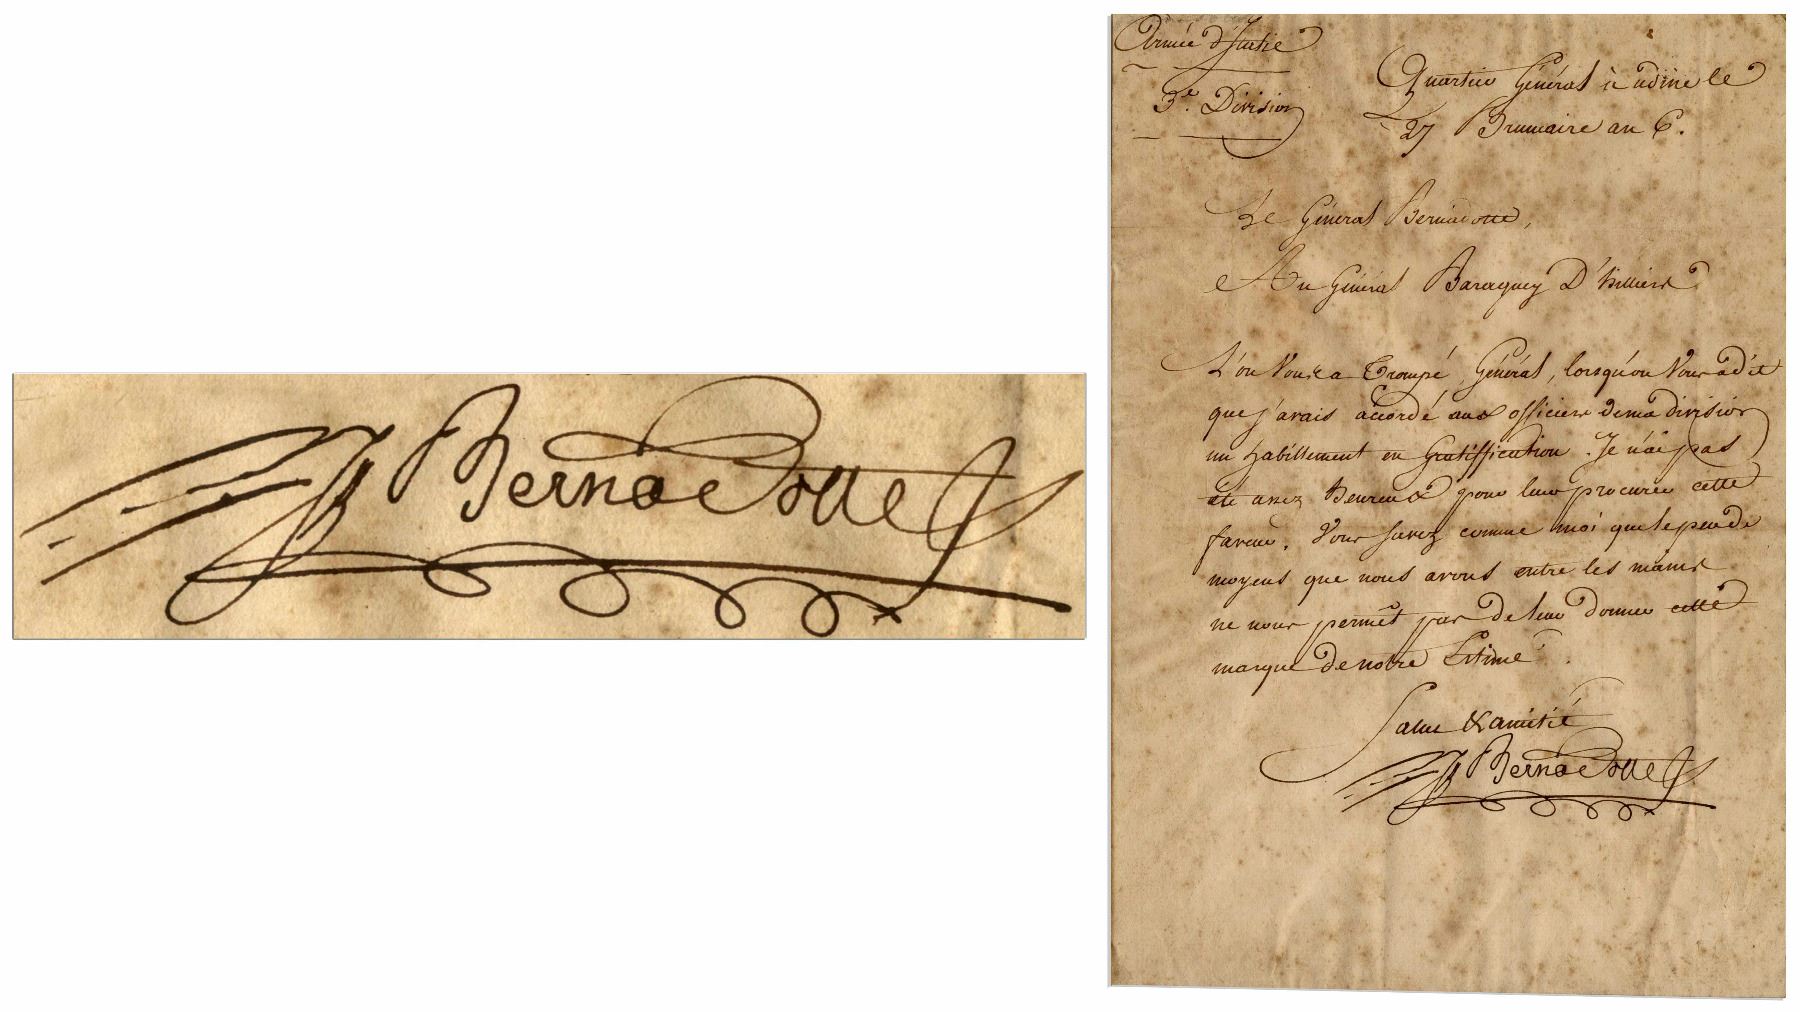 J Bernadotte
Armée d'Italie
3e. Division
Quartier Général à udine le
27 Brumaire an 6.
Le Général Bernadotte,
Au Général Baraguey D'hilliers
L'on Vous a Trompé, Général, lorsqu'on Vous a dit
que j'avais accordé aux officiers de ma division
un habillement en Gratiffication. Je n'ai pas
été assez heureux pour leur procurer cette
faveur. Vous savez comme moi que le peu de
moyens que nous avons entre les mains
ne nous permêt pas de leur donner cette
marque de notre Estime
Salut & amitié
J Bernadotte